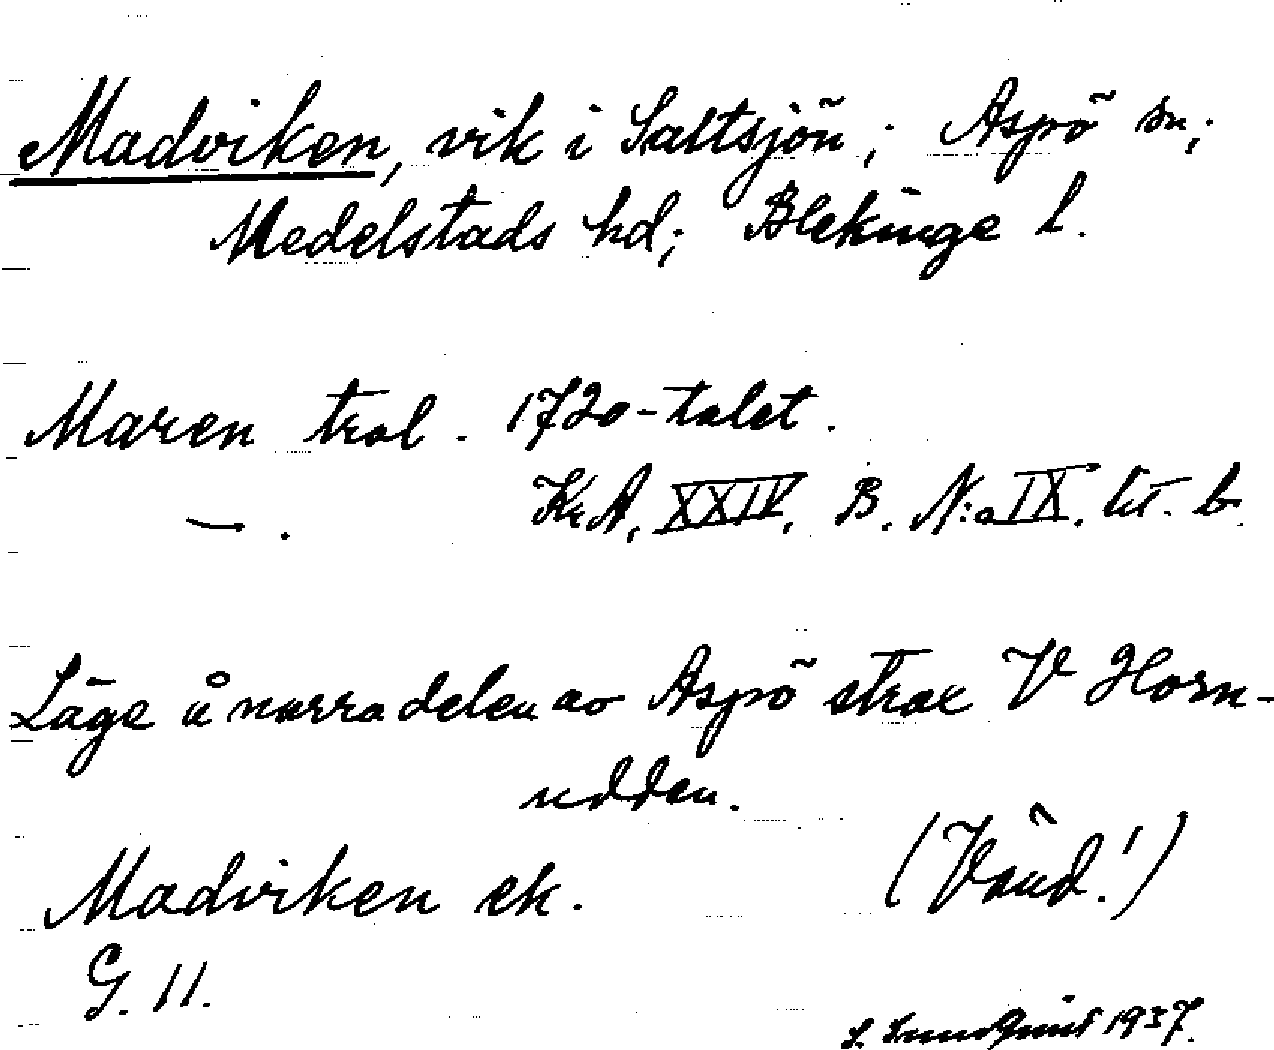 Madviken, vik i Saltsjön; Aspö sn;
Medelstads hd; Blekinge l.
Maren trol. 1720-talet.
—. KrA, XXIV, B. N:o IX. lit. b.
Läge å norra delen av Aspö strax V Horn-
udden.
Madviken ek. (Vänd!)
G. 11.
S. Sundquist 1937.